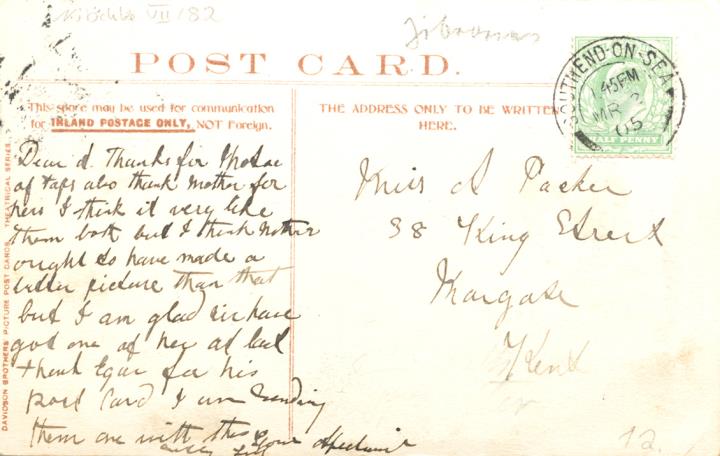 VII/82
POST CARD.
This space may be used for communication
for INLAND POSTAGE ONLY, NOT Foreign.
THE ADDRESS ONLY TO BE WRITTEN
HERE.
SOUTHEND-ON-SEA
45PM
MR 2
05
HALF PENNY
DAVIDSON BROTHERS' PICTURE POST CARDS. THEATRICAL SERIES.
Dear A. Thanks for Photo
of Taps also thank Mother for
hers I think it very like
them both but I think Mother
ought to have made a
better picture than that
but I am glad we have
got one of her at last
thank Egar for his
post card I am sending
them one with this
Miss A Packer
38 King Street
Margate
Kent
12.